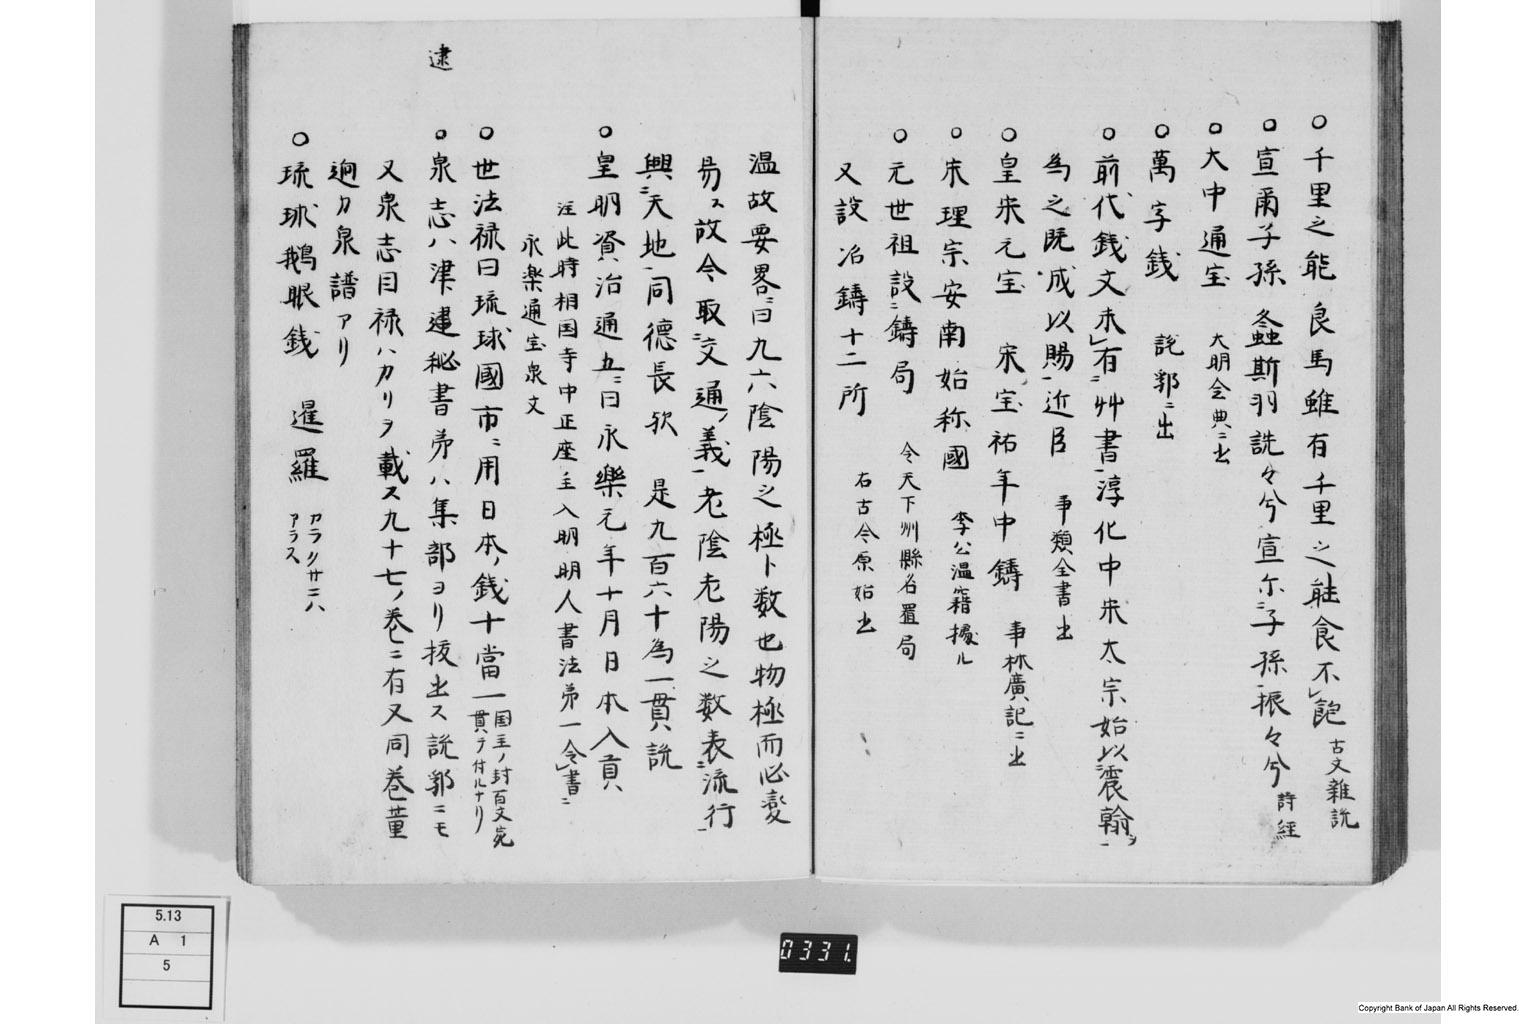 ○千里之能 良馬雖有千里之能食不飽 古文雑説
○宣爾子孫 螽斯羽詵々兮宣尓子孫振々兮 詩経
○大中通宝 大明会典ニ出
○萬字銭 説郛ニ出
○前代銭文未有艸書淳化中宋太宗始以宸翰ヲ
為之既成以賜近臣 事類全書出
○皇宋元宝 宋宝祐年中鋳 事林廣記ニ出
○宋理宗安南始称國 李公温籍據ル
○元世祖設鋳局 令天下州縣各置局
又設冶鋳十二所 右古今原始出
温故要畧ニ曰九六陰陽之極ト数也物極而必変
易ス故今取交通ノ義老陰老陽之数表流行
興天地同德長欤 是九百六十為一貫ハ説
○皇明資治通五ニ曰永樂元年十月日本入貢ハ
注此時相国寺中正座主入明明人書法第一令書ニ
永楽通宝泉文
○世法禄曰琉球國市ニ用日本ノ銭十當一国王ノ封百文宛
貫ヲ付ルナリ
逮
○泉志ハ津逮秘書第八集部ヨリ抜出ス説郛ニモ
又泉志目禄ハカリヲ載ス九十七ノ巻ニ有又同巻董
逈カ泉譜アリ
○琉球鵝眼銭 暹羅 カラリサニハ
アラス
5.13
A 1
5
0331.
Copyright Bank of Japan All Rights Reserved.